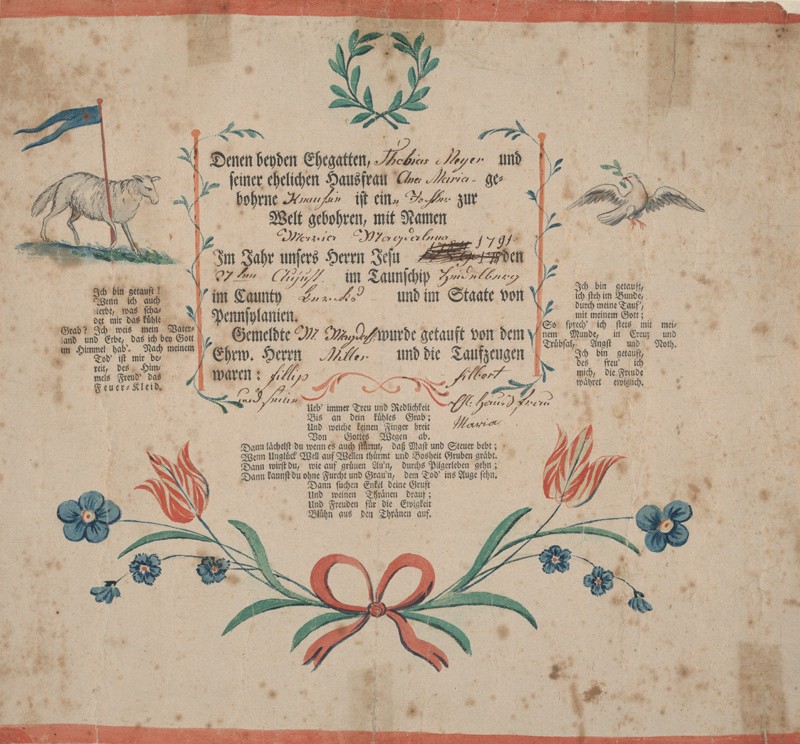 Denen beyden Ehegatten, Thobias Meyer und
seiner ehelichen Hausfrau Ana Maria ge-
bohrne ist ein Tochter zur
Welt gebohren, mit Namen
Maria Magdalena
Im Jahr unsers Herrn Jesu 1791 den
27ten August im Taunschip Heidelberg
im Caunty und im Staate von
Pennsylanien.
Gemeldte M. wurde getauft von dem
Ehrw. Herrn Miller und die Taufzeugen
waren: fillip filbert
und seine Hausfrau
Maria
Ich bin getauft!
Wenn ich auch
sterbe, was scha-
det mir das kühle
Grab? Ich weis mein Vater-
land und Erbe, das ich bey Gott
im Himmel hab'. Nach meinem
Tod' ist mir be-
reit, des Him-
mels Freud' das
Feuer-Kleid.
Ich bin getauft,
ich steh im Bunde,
durch meine Tauf',
mit meinem Gott;
So sprech' ich stets mit mei-
nem Munde, in Creuz und
Trübsal, Angst und Noth.
Ich bin getauft,
des freu' ich
mich, die Freude
währet ewiglich.
Ueb' immer Treu und Redlichkeit
Bis an dein kühles Grab;
Und weiche keinen Finger breit
Von Gottes Wegen ab.
Dann lächelst du wenn es auch stürmt, daß Mast und Steuer bebt;
Wenn Unglück Well auf Wellen thürmt und Bosheit Gruben gräbt.
Dann wirst du, wie auf grünen Au'n, durchs Pilgerleben gehn;
Dann kannst du ohne Furcht und Grau'n, dem Tod' ins Auge sehn.
Dann suchen Enkel deine Gruft
Und weinen Thränen drauf;
Und Freuden für die Ewigkeit
Blühn aus den Thränen auf.